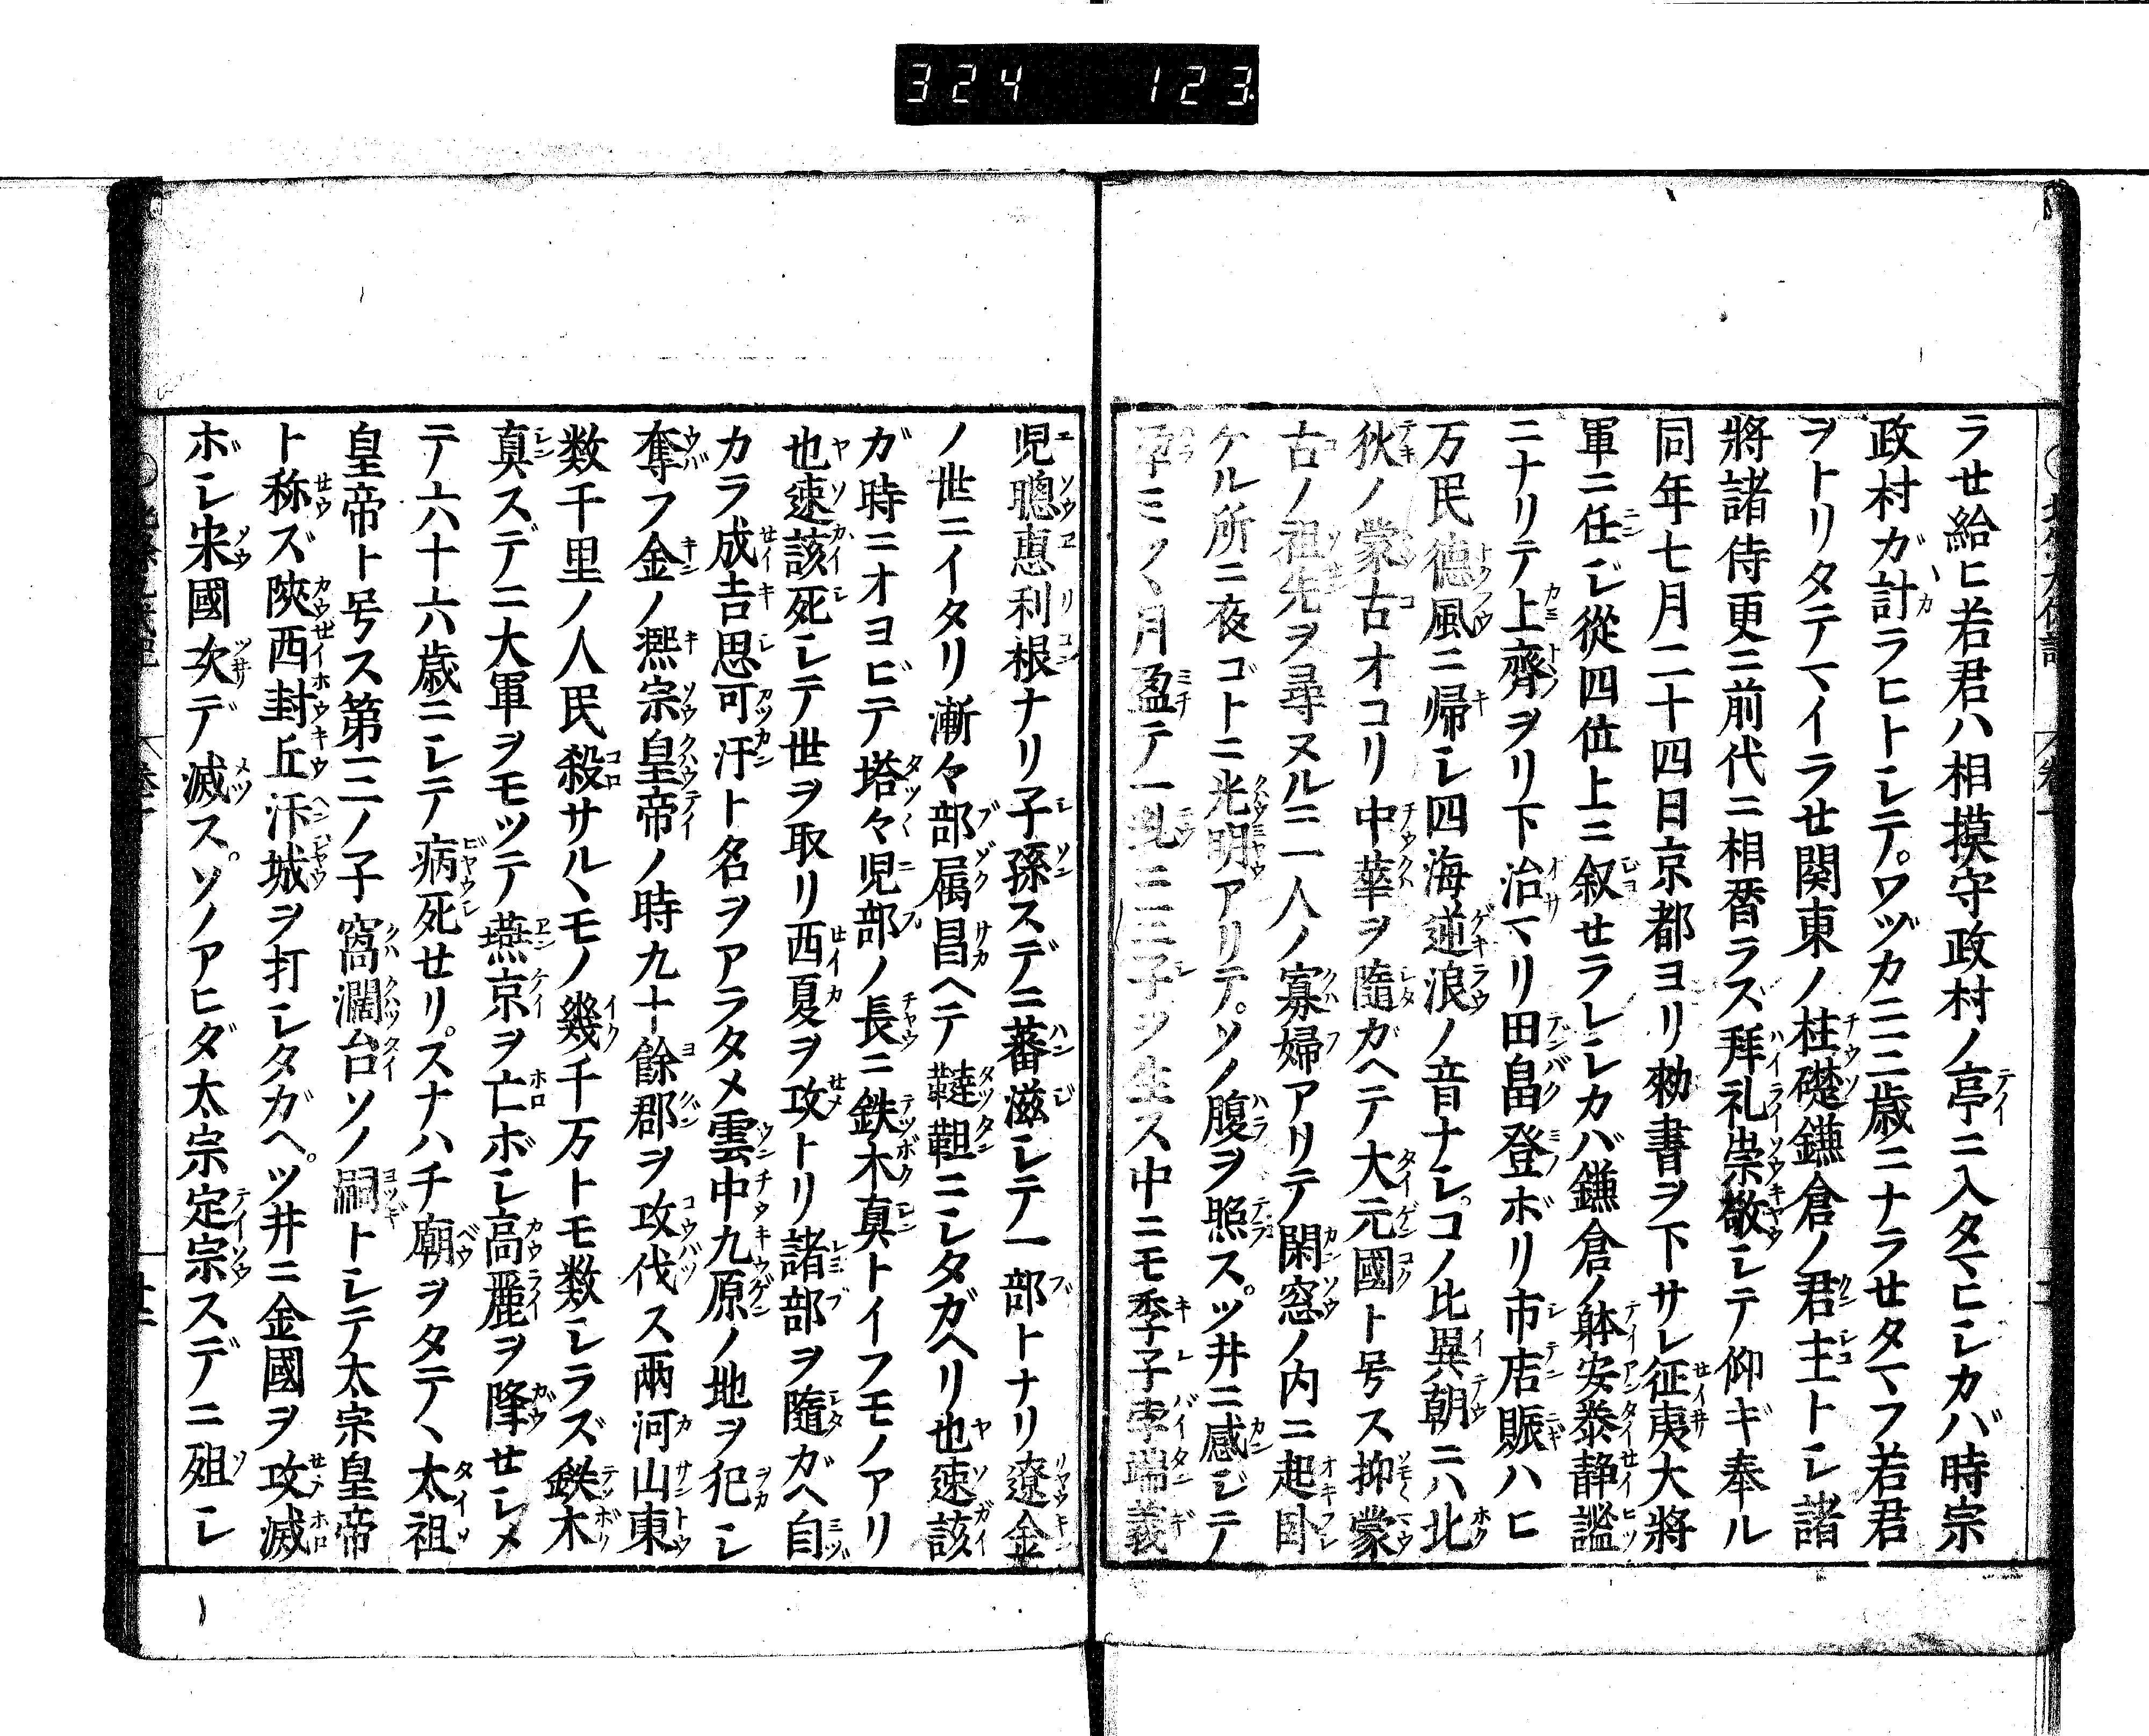 324 123
ラせ給ヒ若君ハ相摸守政村ノ亭ニ入タマヒシカバ時宗
政村ガ計ラヒトシテ。ワヅカニ三歳ニナラせタマフ若君
ヲトリタテマイラせ関東ノ柱礎鎌倉ノ君主トシ諸
將諸侍更ニ前代ニ相替ラズ拜礼崇敬シテ仰ギ奉ル
同年七月二十四日京都ヨリ勅書ヲ下サレ征夷大將
軍ニ任ジ從四位上ニ叙せラレシカバ鎌倉ノ躰安泰静謐
ニナリテ上齊ヲリ下治マリ田畠登ボリ市店賑ハヒ
万民德風ニ帰シ四海逆浪ノ音ナシ。コノ比異朝ニハ北
狄ノ蒙古オコリ中華ヲ隨ガヘテ大元國ト号ス抑蒙
古ノ祖先ヲ尋ヌルニ一人ノ寡婦アリテ閑窓ノ内ニ起卧
ケル所ニ夜ゴトニ光明アリテ。ソノ腹ヲ照ス。ツ井ニ感ジテ
孕ミツヽ月盈テ一乳ニ三子ヲ生ス中ニモ季子孛端義
児聰恵利根ナリ子孫スデニ蕃滋シテ一部トナリ遼金
ノ世ニイタリ漸々部属昌ヘテ韃靼ニシタガヘリ也速該
ガ時ニオヨビテ塔々児部ノ長ニ鉄木真トイフモノアリ
也速該死シテ世ヲ取リ西夏ヲ攻トリ諸部ヲ隨ガヘ自
カラ成吉思可汗ト名ヲアラタメ雲中九原ノ地ヲ犯シ
奪フ金ノ熈宗皇帝ノ時九十餘郡ヲ攻伐ス兩河山東
数千里ノ人民殺サルヽモノ幾千万トモ数シラズ鉄木
真スデニ大軍ヲモツテ燕京ヲ亡ボシ高麗ヲ降せシメ
テ六十六歳ニシテ病死せリ。スナハチ廟ヲタテヽ太祖
皇帝ト号ス第三ノ子窩濶台ソノ嗣トシテ太宗皇帝
ト称ズ陜西封丘汴城ヲ打シタガヘ。ツ井ニ金國ヲ攻滅
ボシ宋國次デ滅ス。ソノアヒダ太宗定宗スデニ殂シ